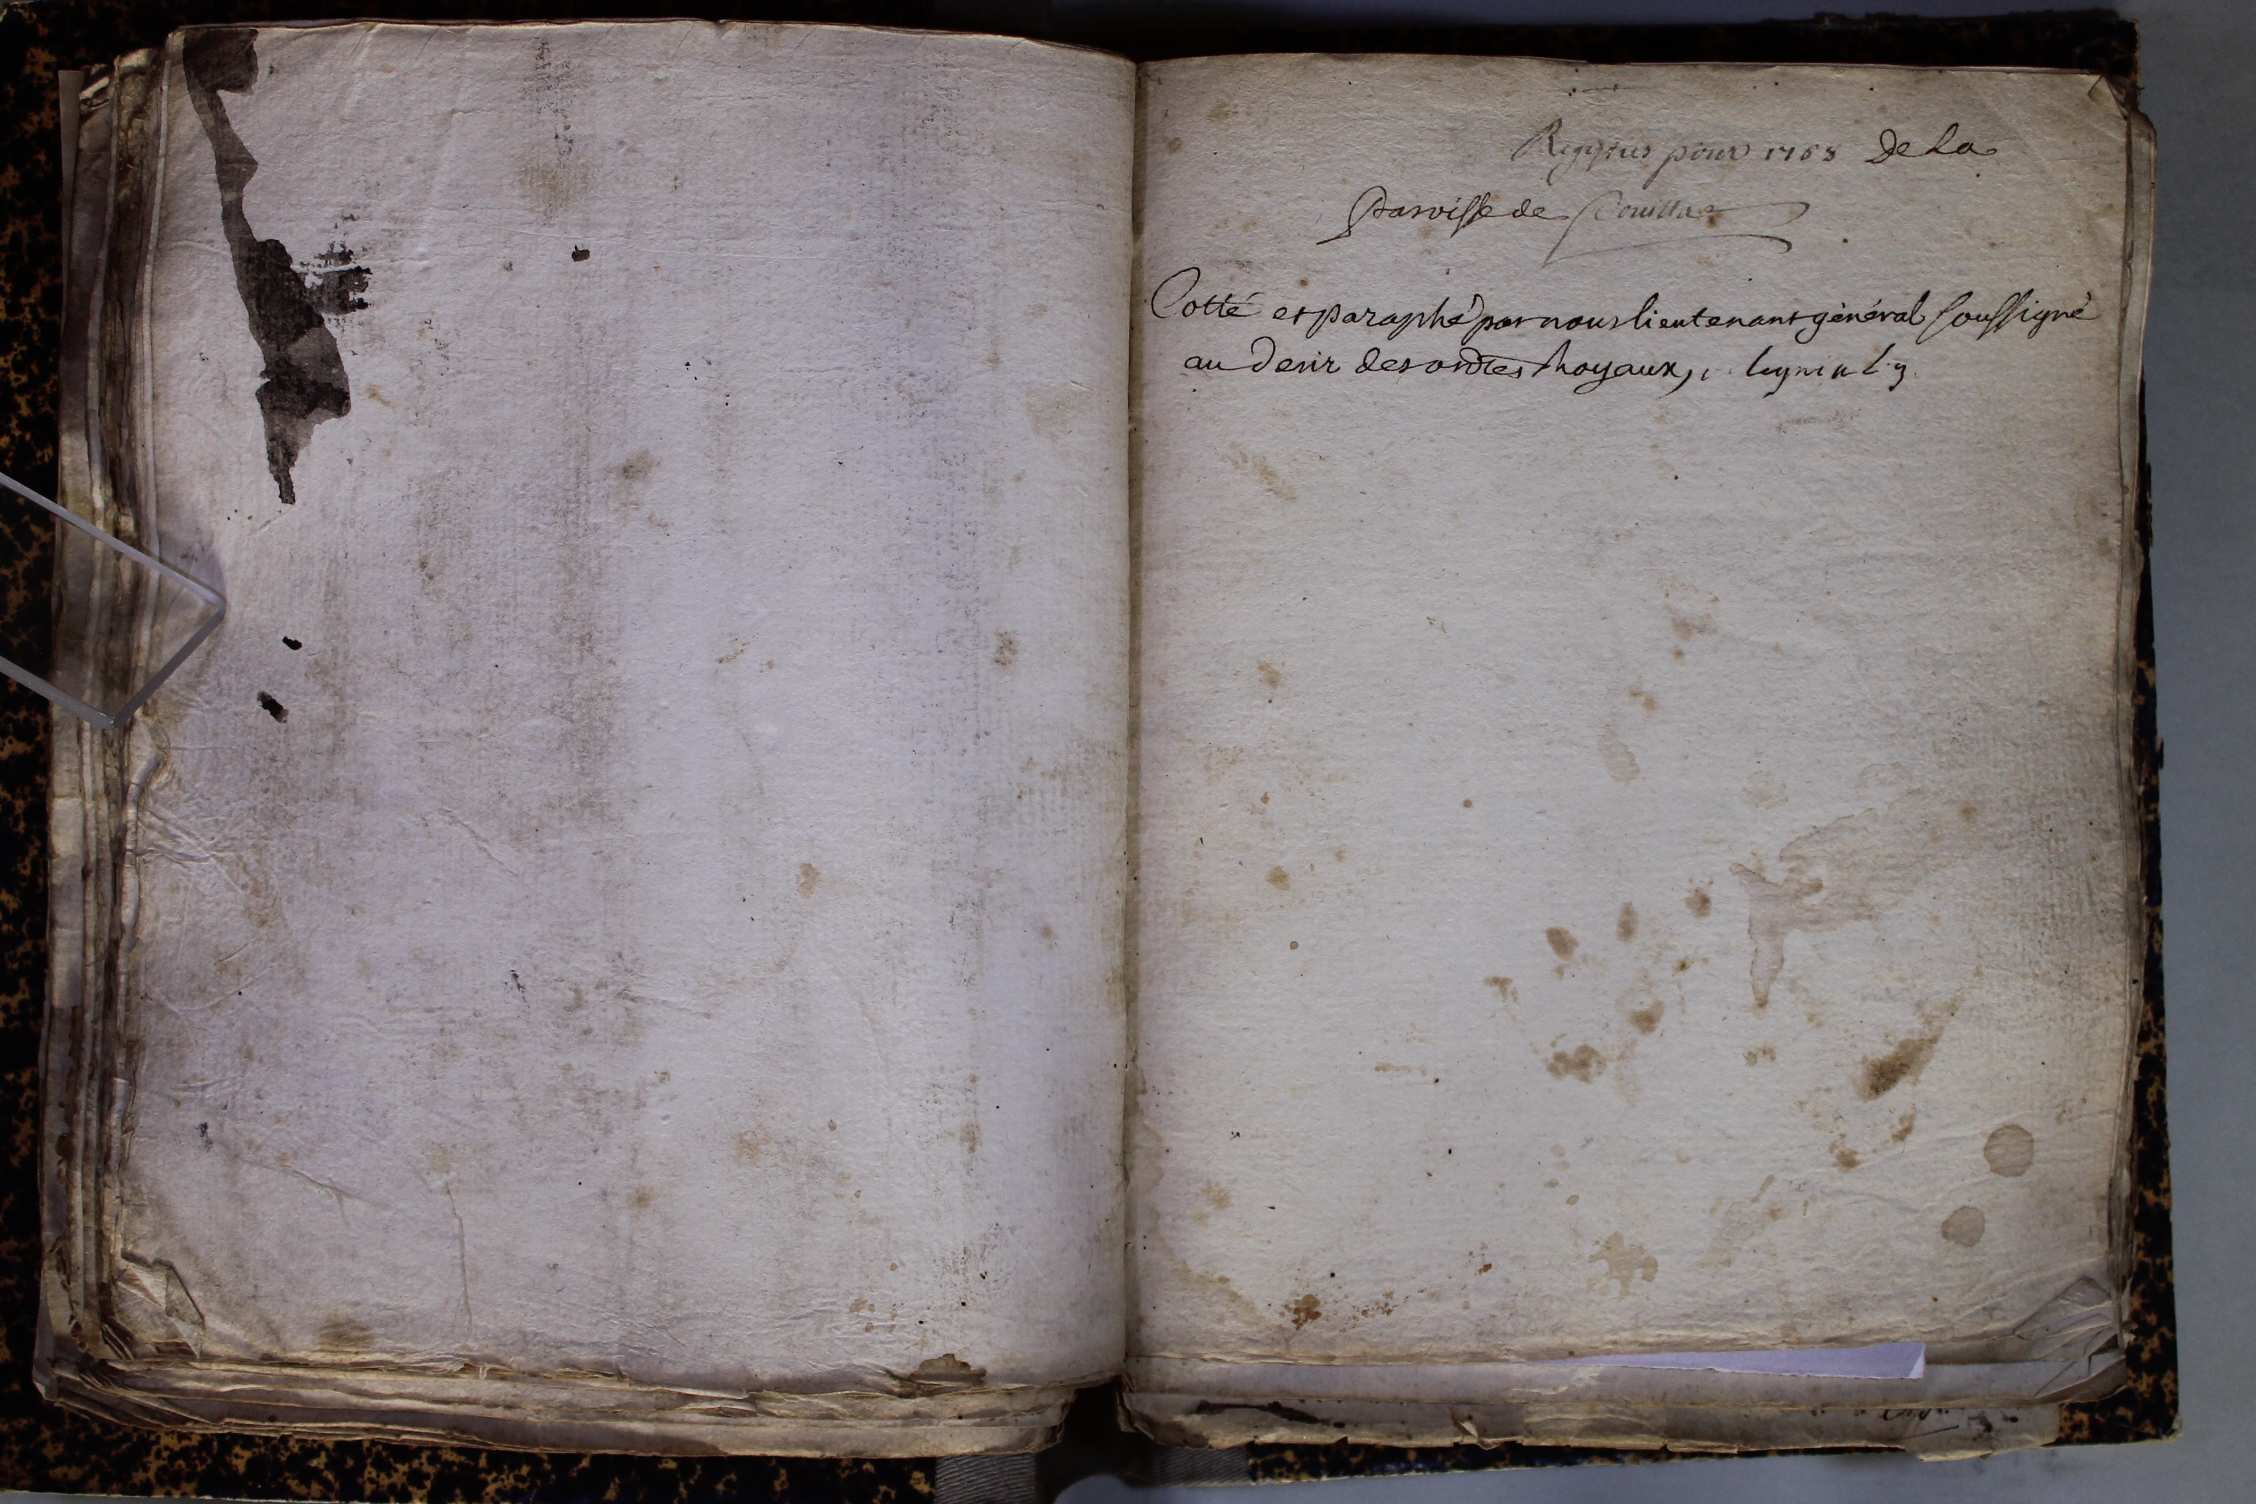 Registres pour 1768 De La
Paroisse de
Cotté et paraphé par nous lieutenant général soussigné
au desir des ordres Royaux,